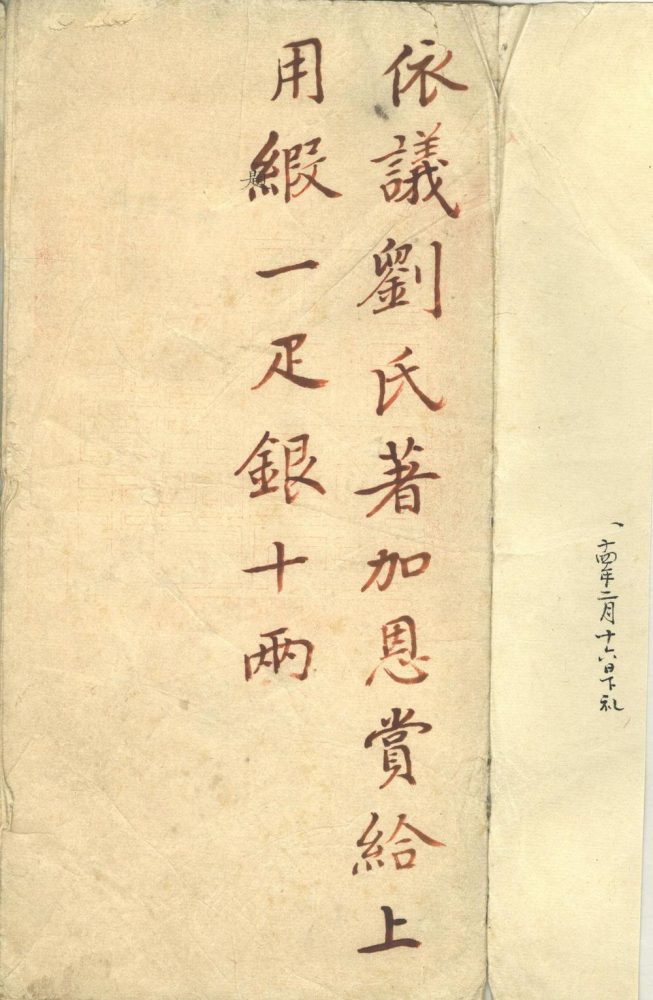 十四年二月十六日下礼
依議劉氏著加恩賞給上
用緞一疋銀十兩